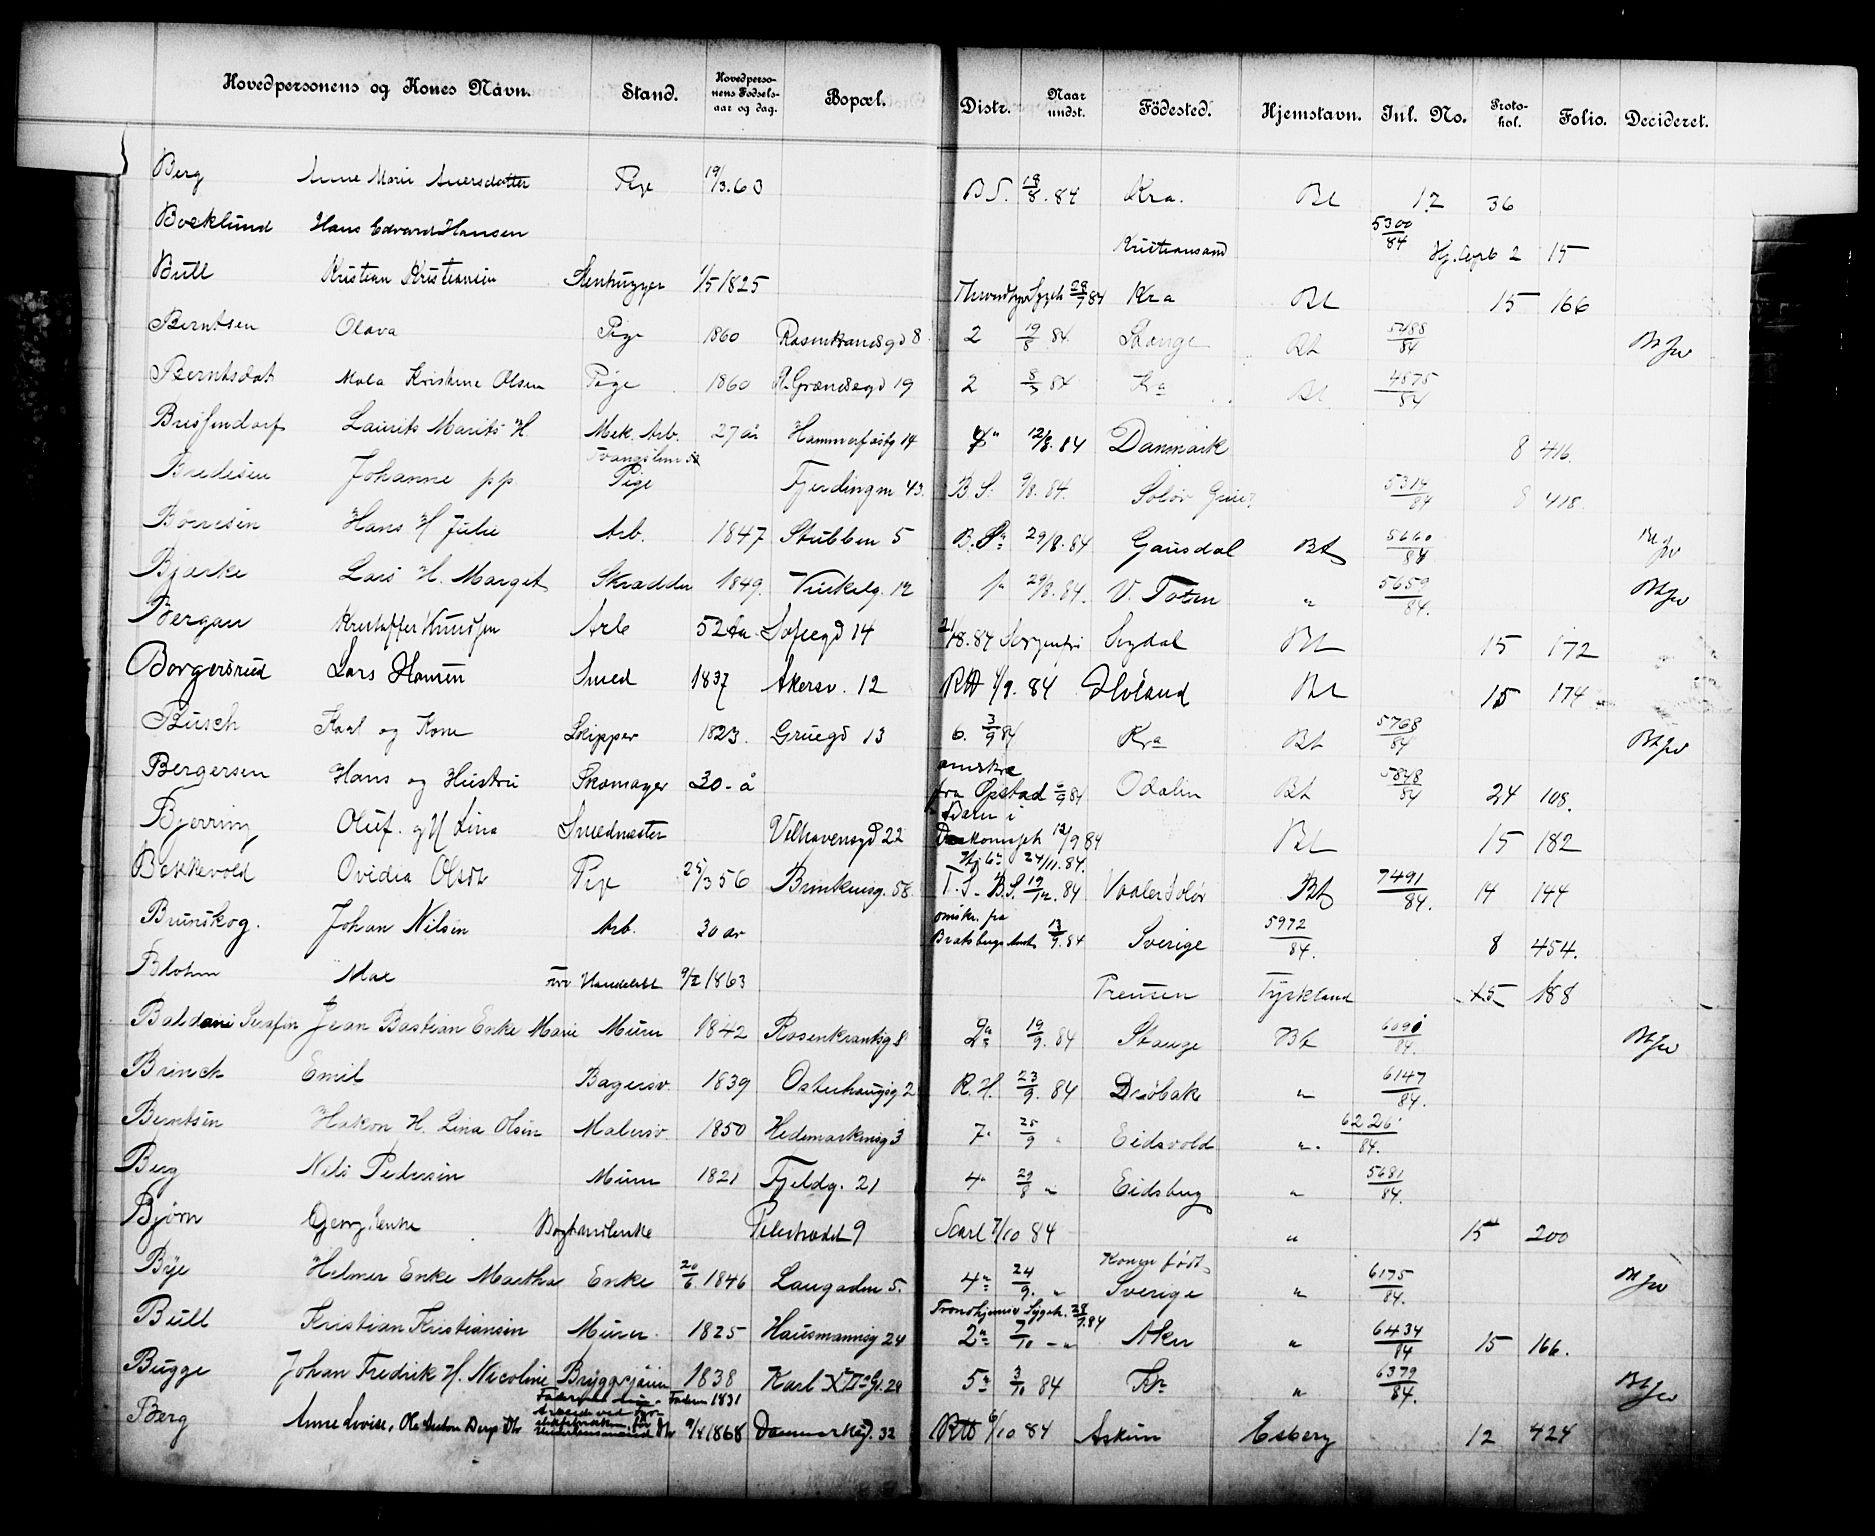 Hovedpersonens og Kones Navn. Stand. Hovedpersonens Fødselsaar og dag. Bopæl. Distr. Naar undst. Födested. Hjemstavn. Inl. No. Protokol. Folio. Decideret.
Berg Anne Marie Andersdatter Pige 19/3.63 B S. 18/8.84 Kra. Bt 12 36
Boeklund Hans Edvard Hansen Kristiansand 5300/84 15
Bull Kristian Kristiansen Stenhugger 1/5 1825 28/7 84 Kra Bt 15 166
Berntsen Olava Pige 1860 Rosenkrandsgd 8 2 19/8 84 Stange Bt 5488/84
Berntsdat Kristine Olsen Pige 1860 Grændsegd 19 2 84 Kra Bt 4875/84
Laurits Marits H. Mek. Arb. 27 år Hammerfastg 14 12/8.84 Danmark 8 416.
Bredesen Johanne pp Pige Fjerdingen 43. B S. 9/8.84. Solør 5314/84 8 418.
Børresen Hans H Julie Arb. 1847 Stubben 5 B. S. 29/8.84 Gausdal Bt 5660/84
Bjærke Lars H. Margit Skrædder 1849. Vinkelg. 12 1" 29/8.84. V. Toten " 5659/84.
Bergan Kristoffer Knudsen Arb 52 Aa. Sofiegd 14 21/8.84 Sorgenfri Sigdal Bt 15 172
Borgersrud Lars Hansen Smed 1837 Akersv. 12 RH 4/9.84 Høland Bt 15 174
Busch Karl og Kone Skipper 1823. Gruegd 13 6. 3/9 84 Kra Bt 5768/84
Bergersen Hans og Hustru Skomager 30 - å omskr fra Opstad 84 Odalen Bt 5848/84 24 108.
Bjerring Oluf. og H Lina Smedmester Velhavensgd 22 Børn i 12/9 84 Bt 15 182
Bekkevold Ovidia Olsdt Pige 25/3 56 Brinkensg. 58. Hj 6" 24/11.84. T. S. B.S. 19/12.84 Vaaler Solør Bt 7491/84. 14 144
Brunskog. Johan Nilsen Arb. 30 år omskr. fra Bratsbergs Amt 13/9.84 Sverige 5972/84. 8 454.
Blohm Max Handelsb 9/2 1863 Preusen Tyskland 15 188
Baldani Serafin Jean Bastian Enke Marie Murer 1842 Rosenkrantsg 8 2" 19/9.84 Stange Bt 84.
Brinch Emil Bagersv. 1839 Osterhausg 2 R. H. 23/9.84 Drøbak " 6147/84.
Berntsen Hakon H. Lina Olsen Malersv. 1850 Hedemarkensg 3 7" 25/9 " Eidsvold " 6226/84.
Berg Nils Pedersen Murer 1821 Fjeldg. 21 4" 29/8 " Eidsberg " 5681/84.
Bjørn Georg, enke Boghandlerske Pilestrædet 9 7/10 84 " 15 200
Bye Helmer Enke Martha Enke 20/6 1846 Langaden 5. 4" 24/9. " Konen født Sverige " 6175/84.
Bull Kristian Kristiansen Murer. 1825 Hausmannsg 24 Trondhjems Sygeh. 28/7.84 2" 7/10 " Aker " 6434/84 15 166.
Bugge Johan Fredrik H. Nicoline 1838 Karl XII's G. 29 5" 3/10 84 " 6379/84.
Berg Anne Lovise, Ole Anton Bergs Dtr Faderen 1831 9/4 1868 Danmarksg. 32 RH 6/10 84 Askim Esberg 12 424